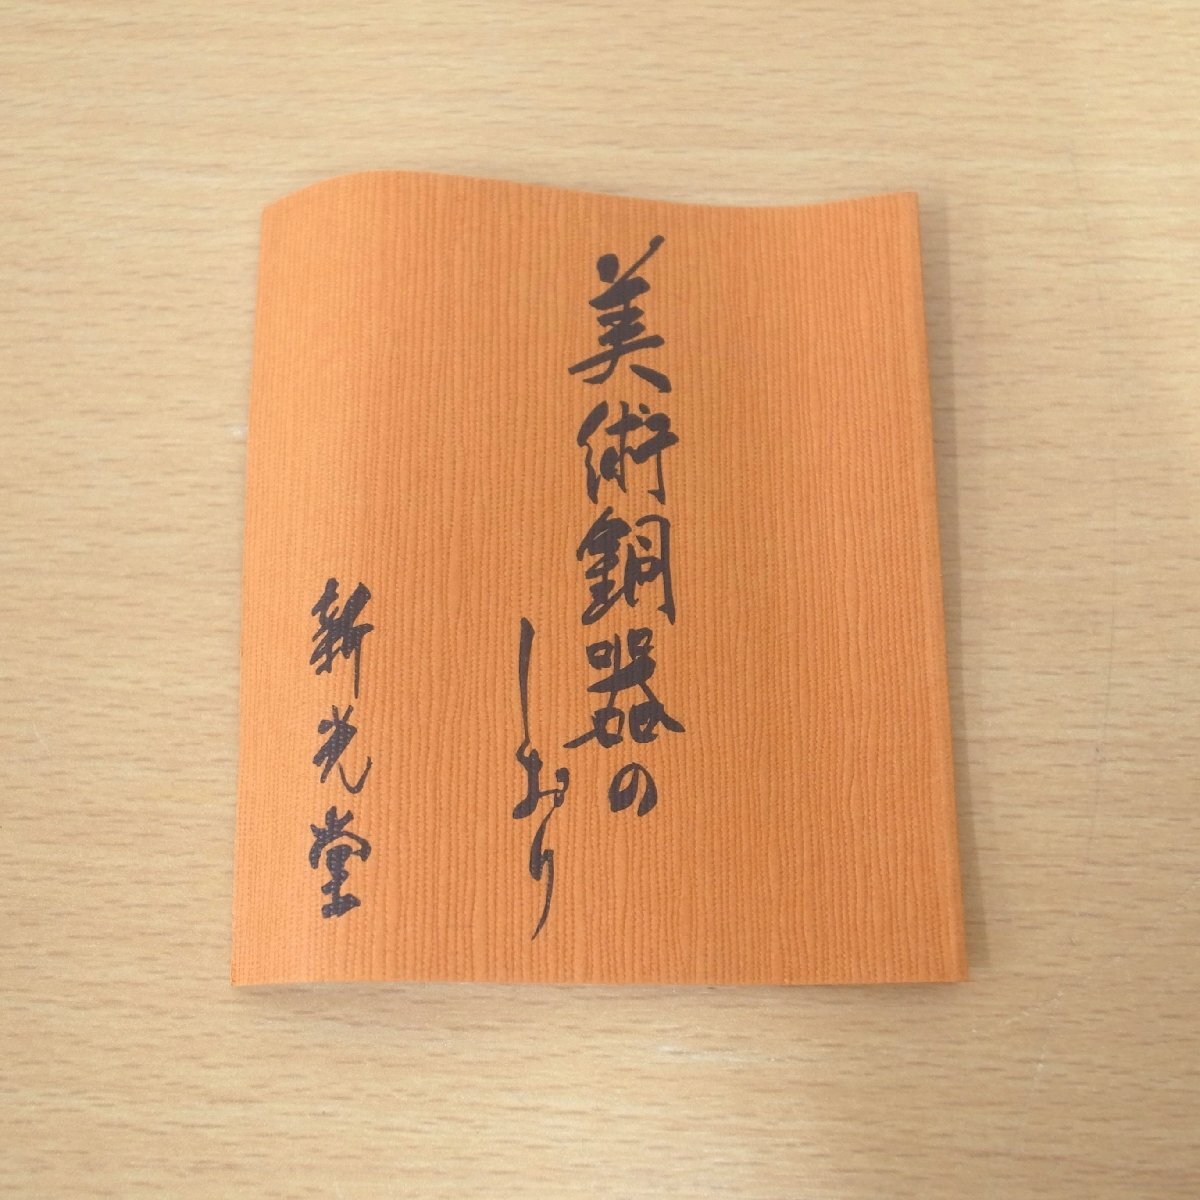 美術銅器の
しおり
新光堂